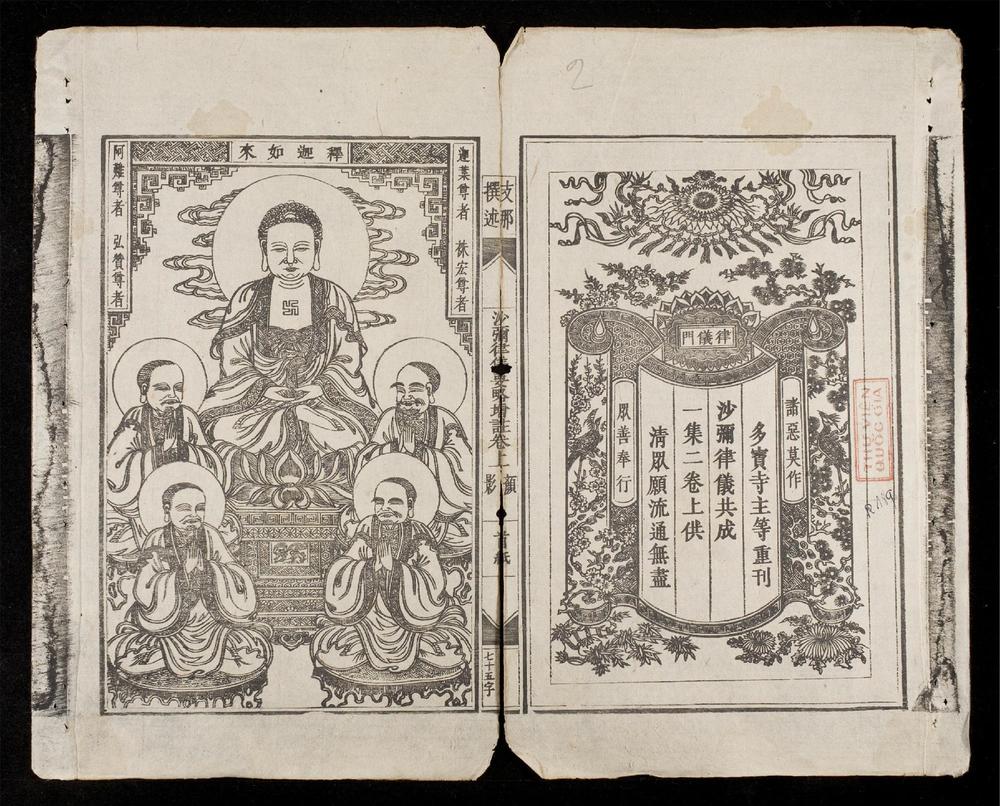 2
律儀門
諸惡莫作
多寶寺主等重刊
沙彌律儀共成
一集二卷上供
清眾願流通無盡
眾善奉行
THƯ VIỆN
QUỐC GIA
支那
撰述
沙彌律儀要略增註卷上
韻
影
首紙
七十五字
釋迦如來
迦葉尊者 株宏尊者
阿難尊者 弘贊尊者